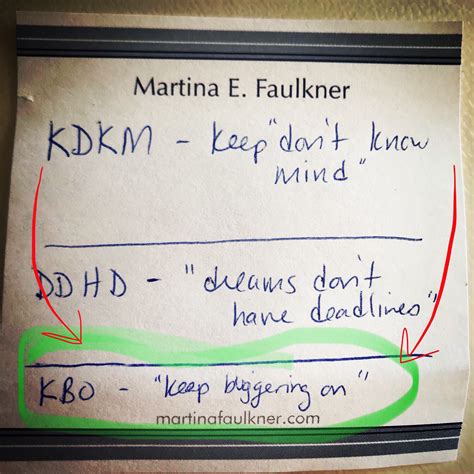 Martina E. Faulkner
KDKM - keep "don't know
mind"
DDHD - "dreams don't
have deadlines"
KBO - "keep buggering on"
martinafaulkner.com